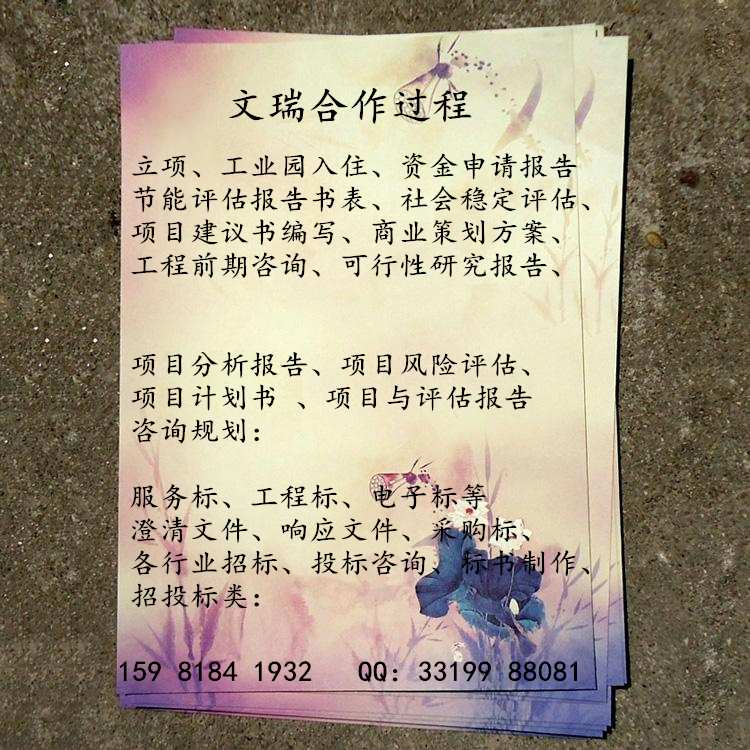 文瑞合作过程
立项、工业园入住、资金申请报告
节能评估报告书表、社会稳定评估、
项目建议书编写、商业策划方案、
工程前期咨询、可行性研究报告、
项目分析报告、项目风险评估、
项目计划书 、项目与评估报告
咨询规划：
服务标、工程标、电子标等
澄清文件、响应文件、采购标、
各行业招标、投标咨询、标书制作、
招投标类：
159 8184 1932 QQ: 33199 88081